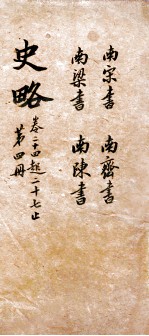 南宗書　南齊書
南梁書　南陳書
史略
卷二十四起二十七止
第四冊